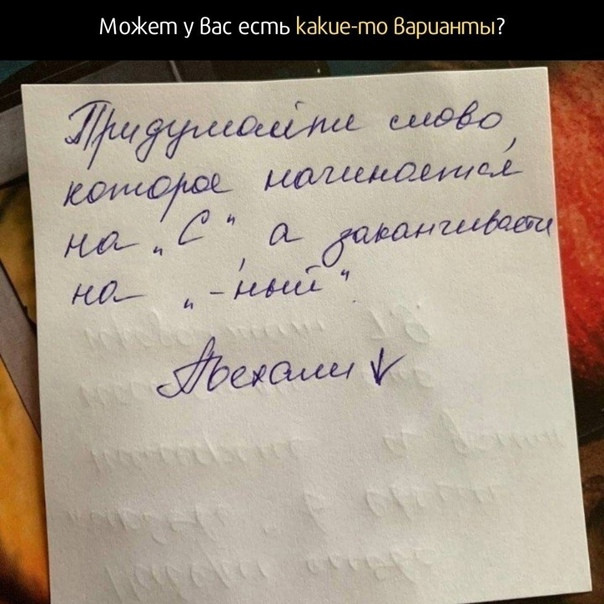 Может у вас есть какие-то варианты?
Придумайте слово,
которое начинается
на „С", а заканчивается
на „-ный".
Поехали ↓